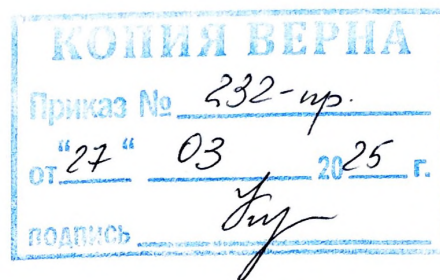 КОПИЯ ВЕРНА
Приказ № 232-пр.
от "27" 03 2025 г.
подпись